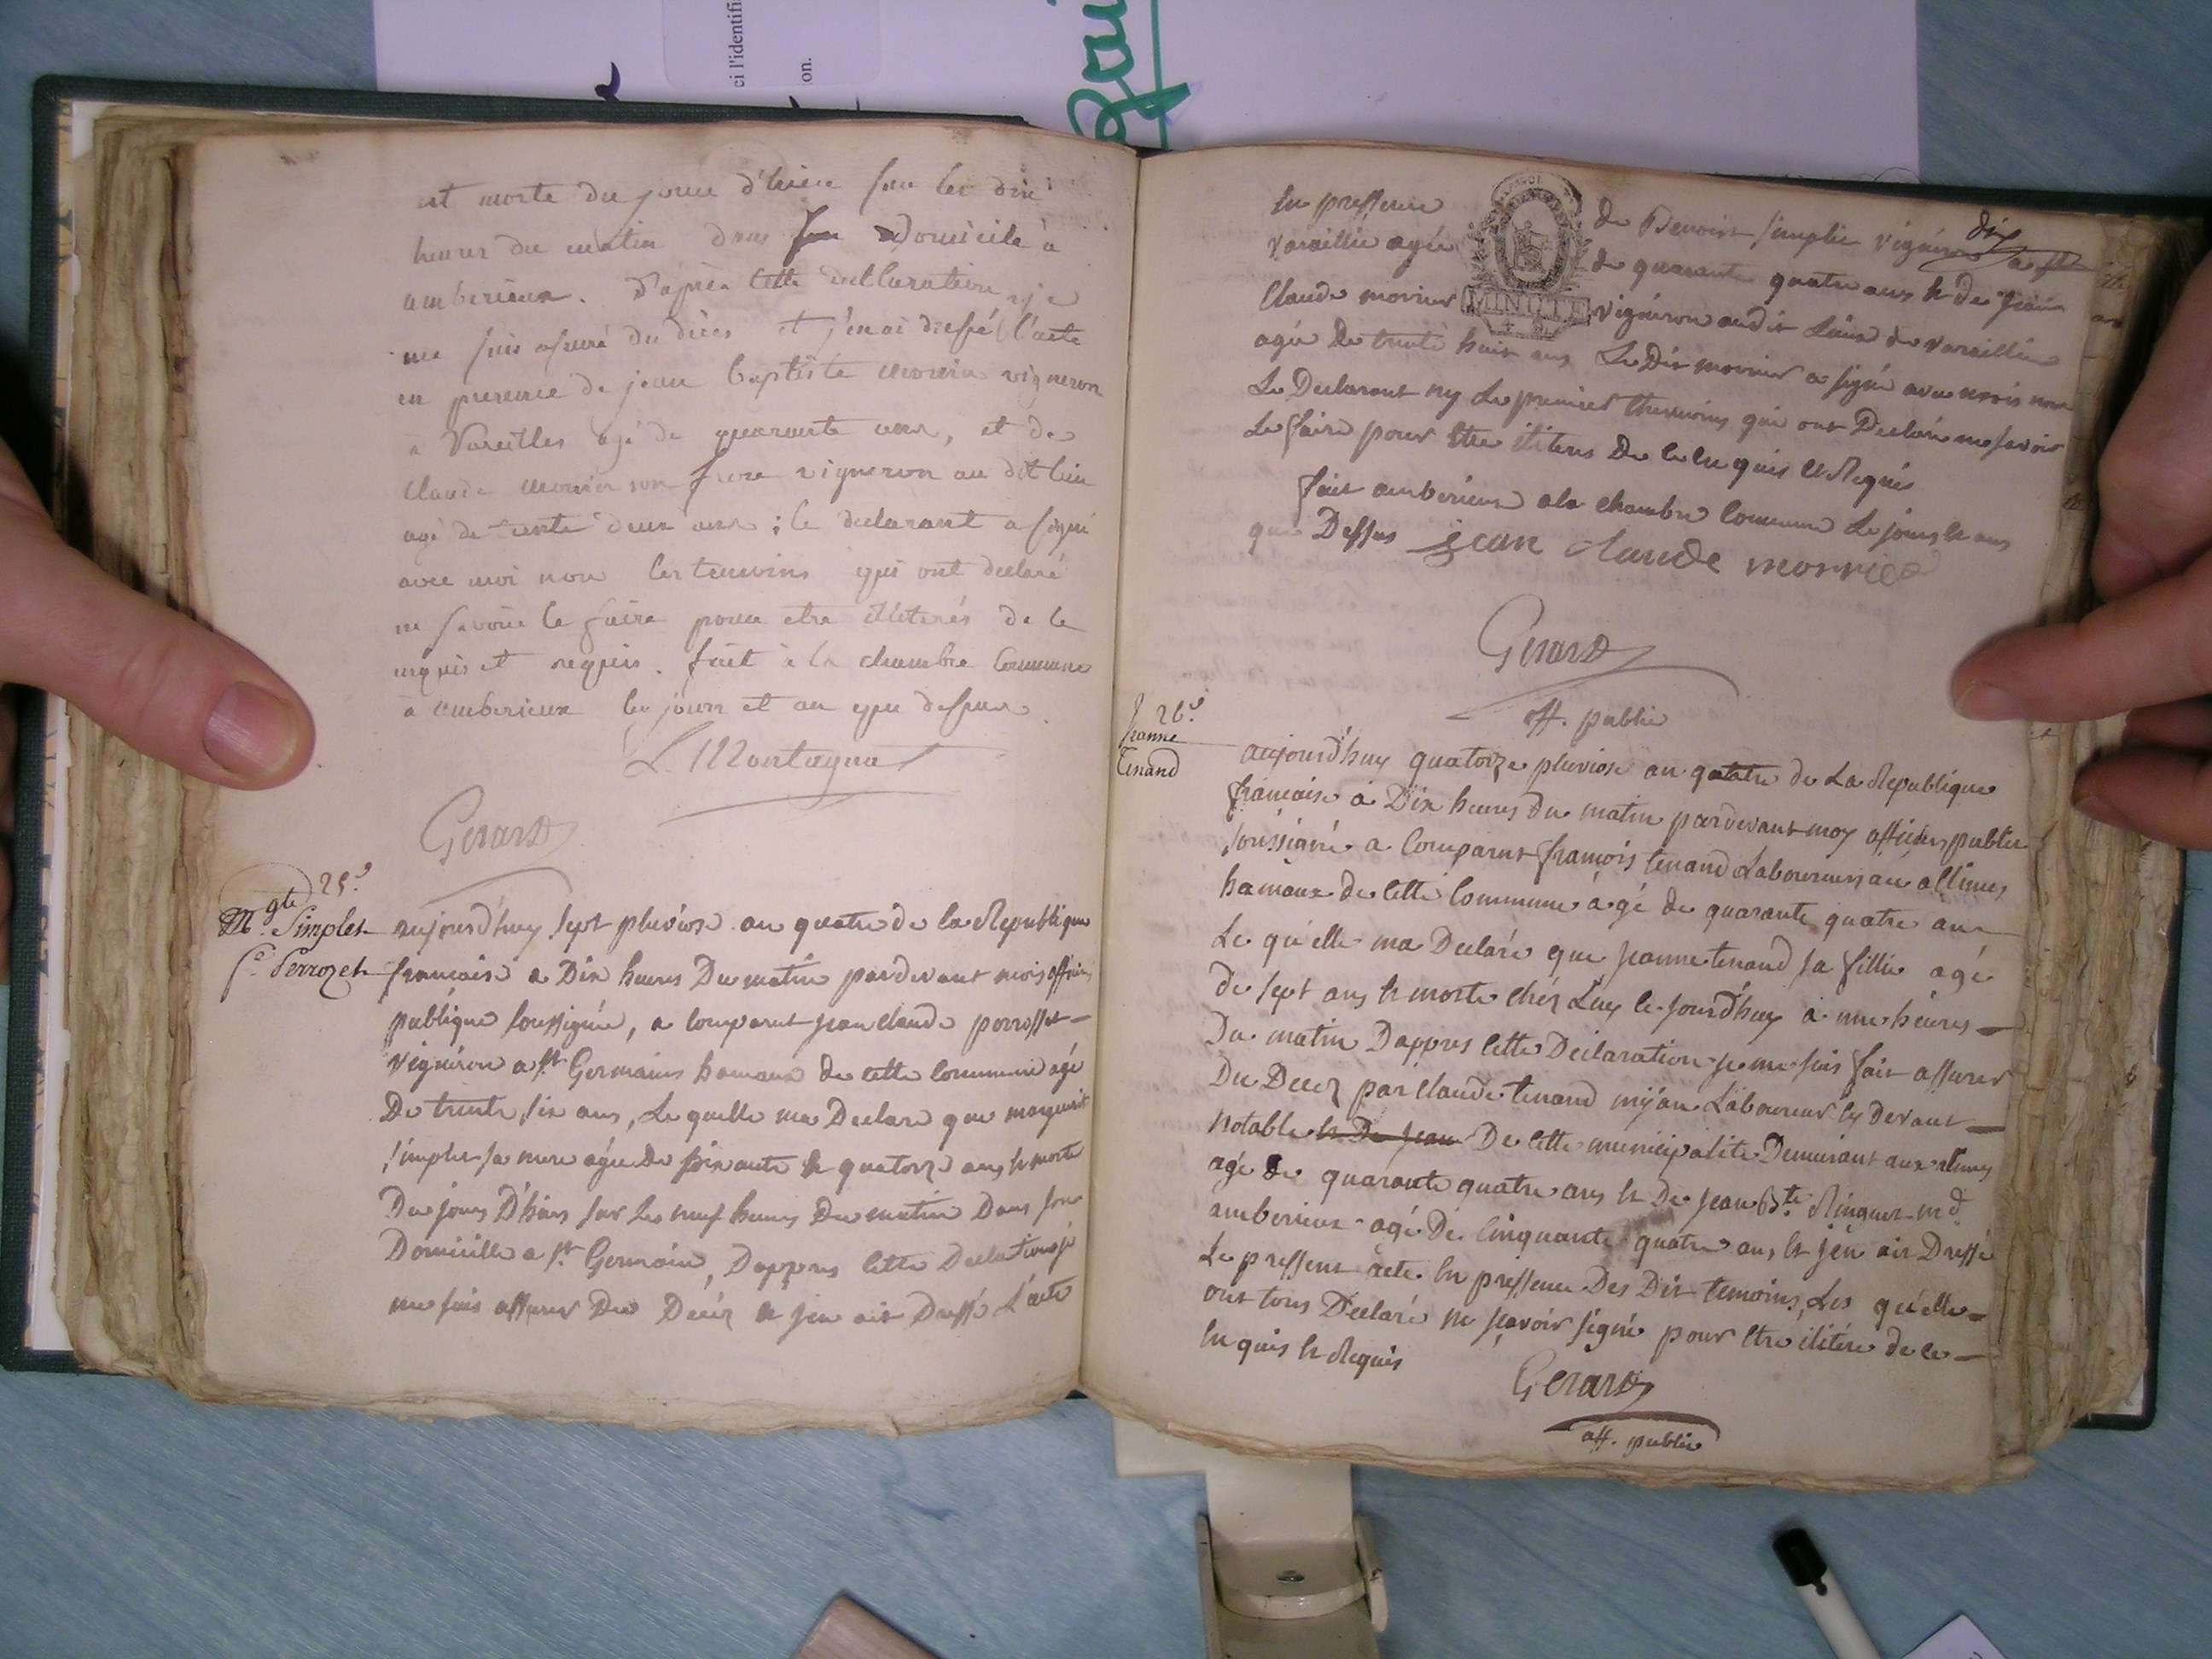 ci l'identifi
on.
est morte du jour d'hier sur les dix
heures du matin dans son Domicile à
amberieux. D'après cette declaration, je
me suis assuré du déces et j'en ai dressé l'acte
en presence de jean baptiste morier vigneron
à Vareilles agé de quarante ans, et de
claude morier son frere vigneron au dit lieu
agé de trente deux ans; le declarant a signé
avec moi non les temoins qui ont declaré
ne savoir le faire pour etre illiterés de ce
enquis et requis. fait à la chambre Commune
à amberieux les jour et an que dessus.
L. Montagna
Gerard
25.e
M.gte Simplet
f.e Perrozet
aujourd'huy sept pluviose an quatre de la Republique
francaise a Dix heures Du matin pardevant mois officier
publique soussigné, a comparut jean claude perrosset
vigneron a St Germains hamaux de cette commune agé
De trente six ans, Le quelle ma Declaré que marguerit
simplet sa mere agée de soixante et quatorze ans, et morte
Du jours D'hiers sur Les neuf heures Du matin Dans son
Domicille a St Germain, Dappres cette Declation je
me suis assurer Du Décéz et jen ait Dressé L'acte
en pressence de Benoist simplet vigneron
dix
varaillie agée de quarante quatre ans et de jean
Claude morrier vigneron audit Lieux de varaillie
MINUTE
agée De trente huit ans Le Dit morrier a signé avec mois non
Le Declarant ny Le premier themoins qui ont Declaré ne savoir
Le faire pour etre iliteres De ce enquis et Requis
fait amberieux a la chambre commune Le jours et ans
que Dessus jean claude morrier
Gerard
off. public
26.e
Jeanne
Tenand
aujourd'huy quatorze pluviose an quatre de La Republique
francaise a Dix heures du matin pardevant moy officier public
soussigné a Comparut françois tenand Laboureur
hamaux de cette Commune agé de quarante quatre ans
Le qu'elle ma Declaré que jeanne tenand sa fillie agé
de sept ans et morte chéz Luy ce jourd'huy a une heures
Du matin Dappres cette Declaration je me suis fait assurer
Du Decez par claude tenand Laboureur cy devant
Notable et De jean De cette municipalite Demeurant aux alimes
agé de quarante quatre ans et De jean B.te Ringuet m.d
amberieux agé De cinquante quatre ans, et jen ait Dressé
Le pressent acte en pressence Des Dit temoins, Les qu'elle
ont tous Declaré ne sçavoir signé pour etre ilitére de ce
en quis et Requis
Gerard
off. public